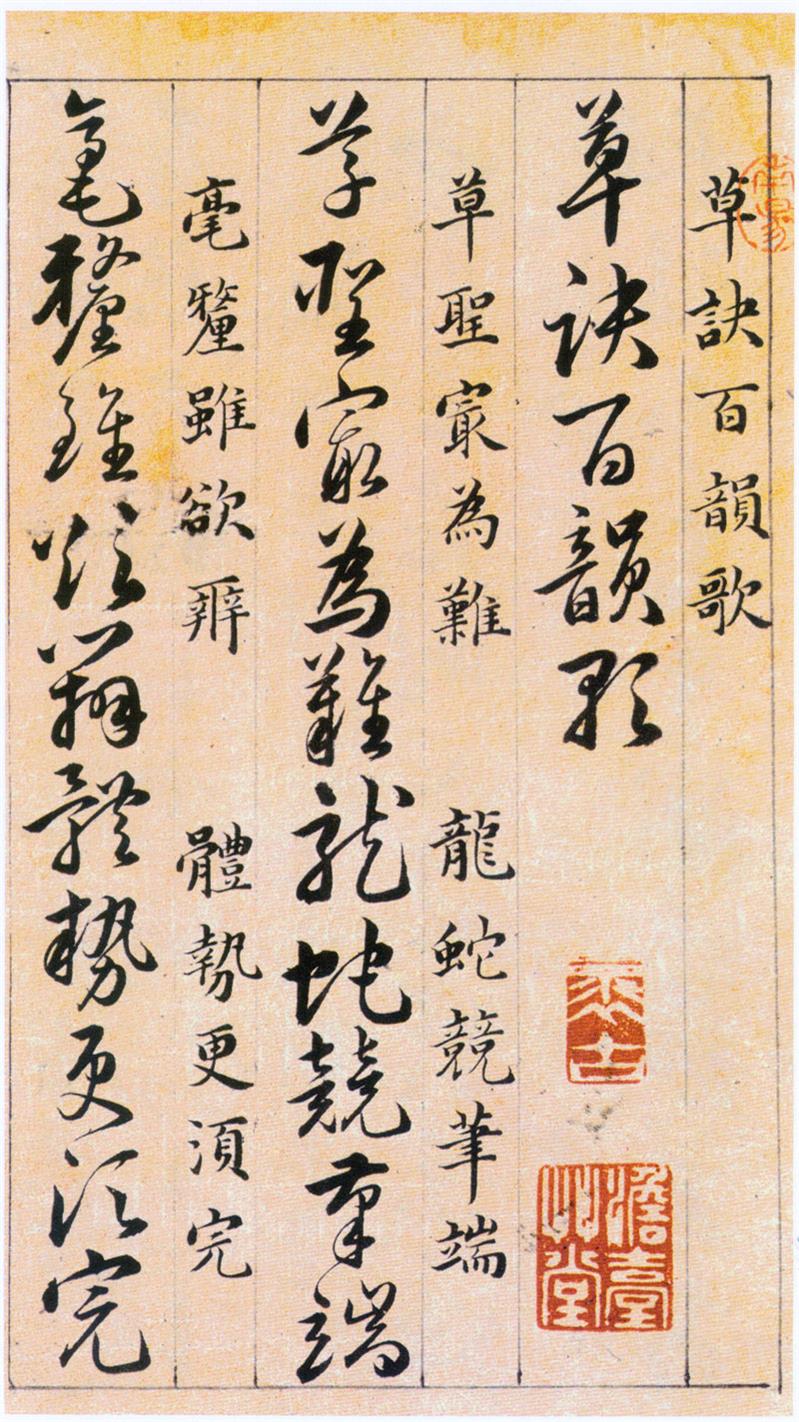 草訣百韻歌
草訣百韻歌
草聖冣為難 龍蛇競筆端
草聖冣為難龍蛇競筆端
毫釐雖欲辨 體勢更須完
毫釐雖欲辨體勢更須完
澹臺
草堂